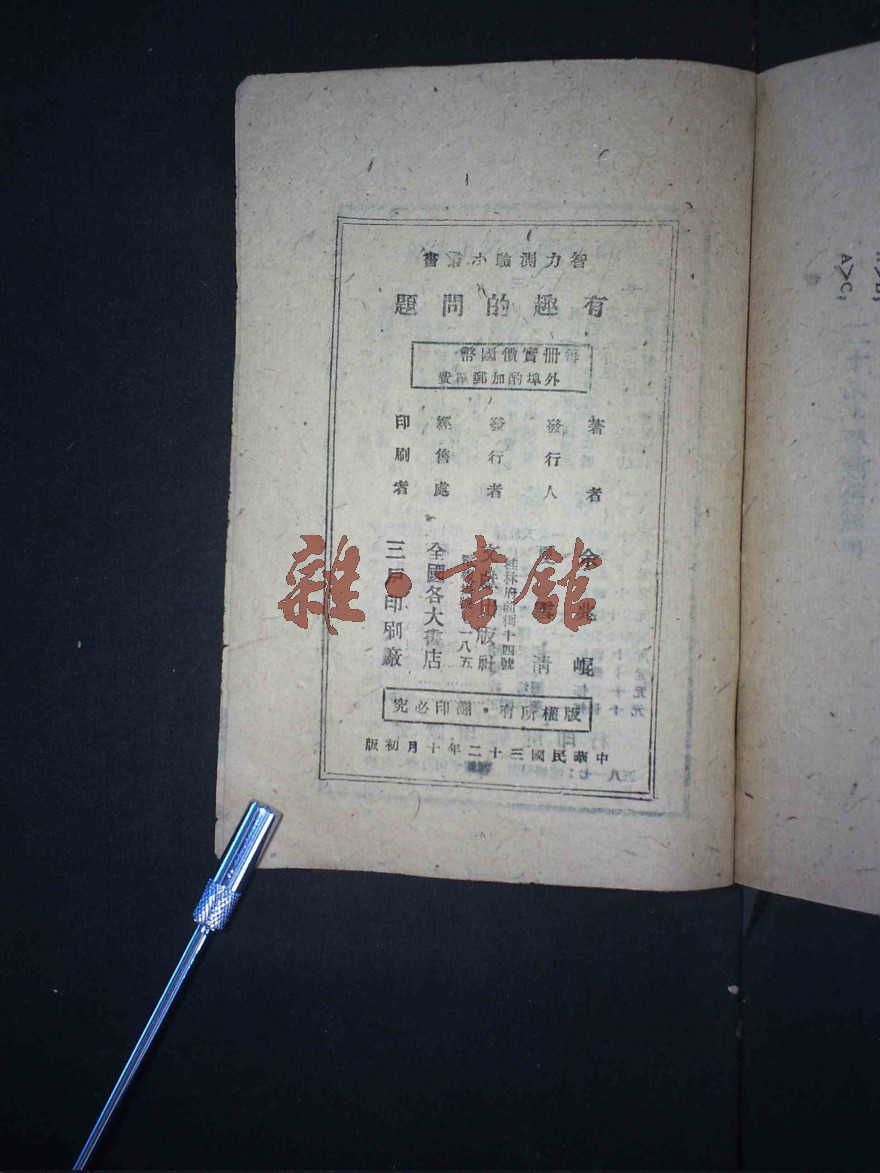 智力測驗小叢書
有趣的問題
每冊實價國幣
外埠酌加郵匯費
著者 余兆崐
發行人 清
發行者 版社
桂林府前街十四號
一八五
經售處 全國各大書店
印刷者 三戶印刷廠
版權所有・翻印必究
中華民國三十二年十月初版
雜・書館
A>C,